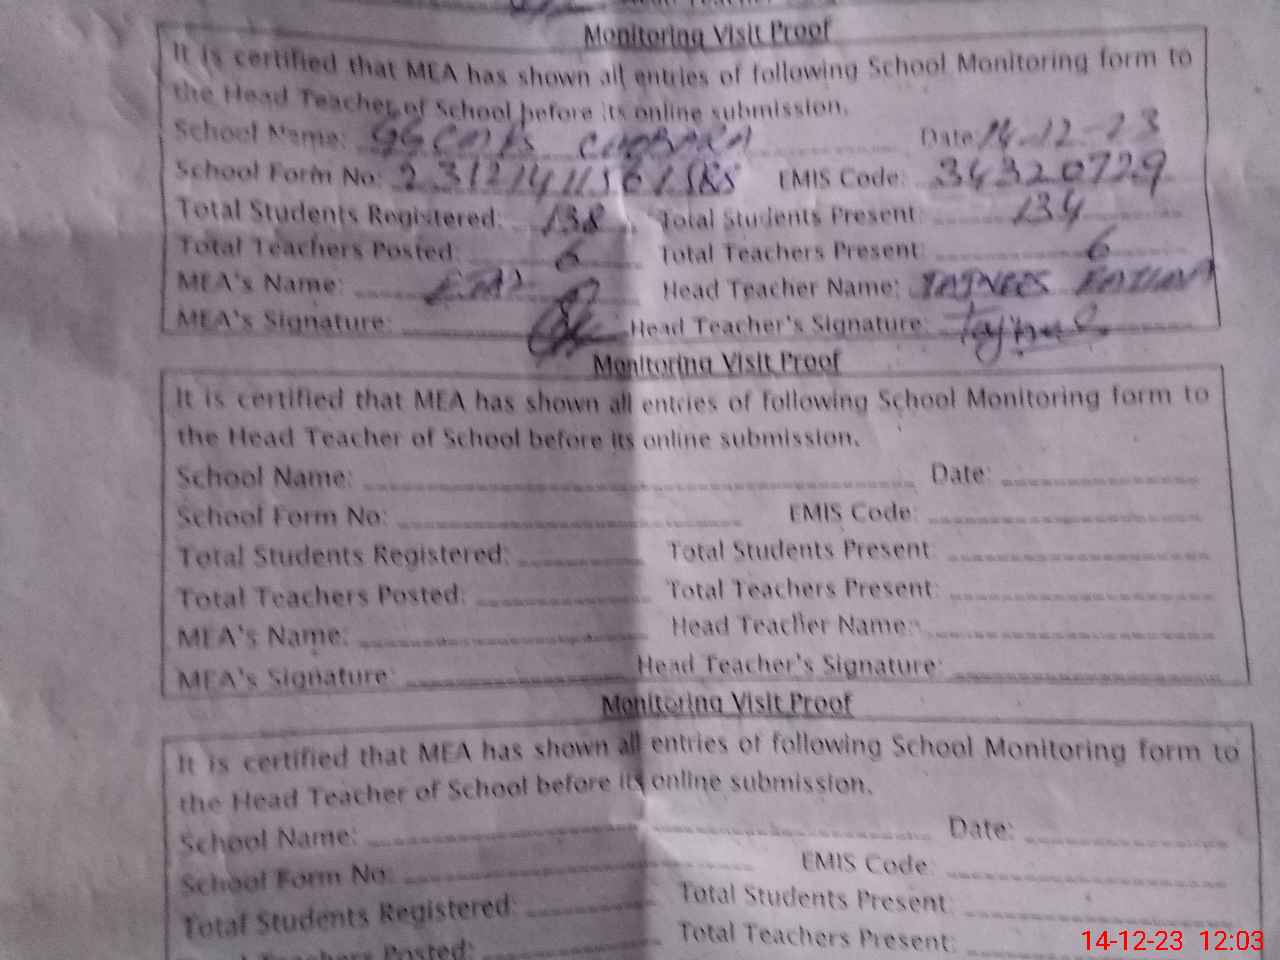 Monitoring Visit Proof
It is certified that MEA has shown all entries of following School Monitoring form to
the Head Teacher of School before its online submission.
School Name: Date: 14-12-23
School Form No: EMIS Code: 34320729
Total Students Registered: 138 Total Students Present: 134
Total Teachers Posted: 6 Total Teachers Present: 6
MEA's Name: Head Teacher Name:
MEA's Signature: Head Teacher's Signature:
Monitoring Visit Proof
It is certified that MEA has shown all entries of following School Monitoring form to
the Head Teacher of School before its online submission.
School Name: Date:
School Form No: EMIS Code:
Total Students Registered: Total Students Present:
Total Teachers Posted: Total Teachers Present:
MEA's Name: Head Teacher Name:
MEA's Signature: Head Teacher's Signature:
Monitoring Visit Proof
It is certified that MEA has shown all entries of following School Monitoring form to
the Head Teacher of School before its online submission.
School Name: Date:
School Form No: EMIS Code:
Total Students Registered: Total Students Present:
Teachers Posted: Total Teachers Present:
14-12-23 12:03